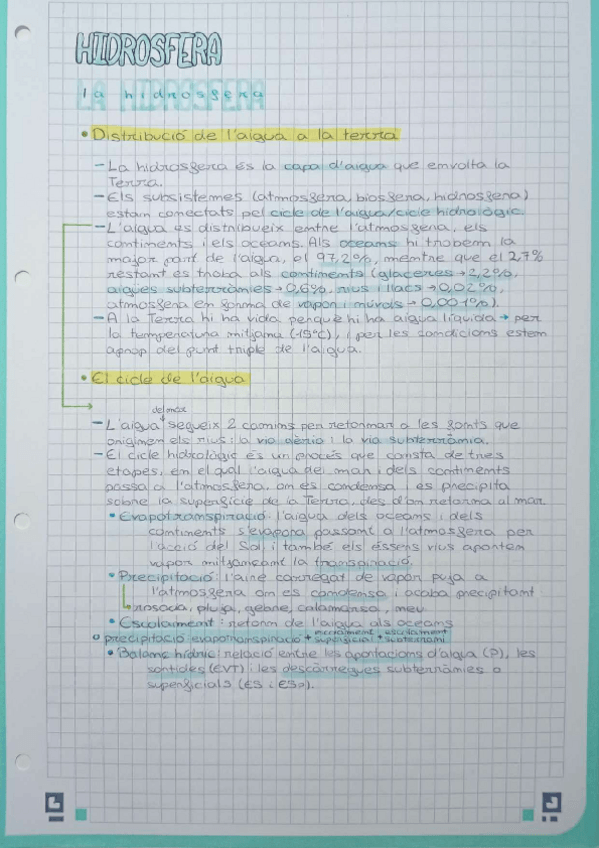 HIDROSFERA
la hidrosfera
• Distribució de l'aigua a la terra
- La hidrosfera és la capa d'aigua que envolta la
Terra.
- Els subsistemes (atmosfera, biosfera, hidrosfera)
estan conectats pel cicle de l'aigua/cicle hidrològic.
- L'aigua es distribueix entre l'atmosfera, els
continents i els oceans. Als oceans hi trobem la
major part de l'aigua, el 97,2%, mentre que el 2,7%
restant es troba als continents (glaceres → 2,2%,
aigües subterrànies → 0,6%, rius i llacs → 0,02%,
atmosfera en forma de vapor i núvols → 0,001%).
- A la Terra hi ha vida perquè hi ha aigua líquida → per
la temperatura mitjana (~15°C), i per les condicions estem
aprop del punt triple de l'aigua.
• El cicle de l'aigua
del mar
- L'aigua segueix 2 camins per retornar a les fonts que
originen els rius: la via aèria i la via subterrània.
- El cicle hidrològic és un procés que consta de tres
etapes, en el qual l'aigua del mar i dels continents
passa a l'atmosfera, on es condensa i es precipita
sobre la superfície de la Terra, des d'on retorna al mar.
• Evapotranspiració: l'aigua dels oceans i dels
continents s'evapora passant a l'atmosfera per
l'acció del Sol, i també els éssers vius aporten
vapor mitjançant la transpiració.
• Precipitació: l'aire carregat de vapor puja a
l'atmosfera on es condensa i acaba precipitant
↳ rosada, pluja, gebre, calamarsa, neu
• Escolament: retorn de l'aigua als oceans
precipitació = evapotranspiració + escolament superficial + escolament subterrani
• Balanç hídric: relació entre les aportacions d'aigua (P), les
sortides (EVT) i les descàrregues subterrànies o
superficials (ES i ESP).